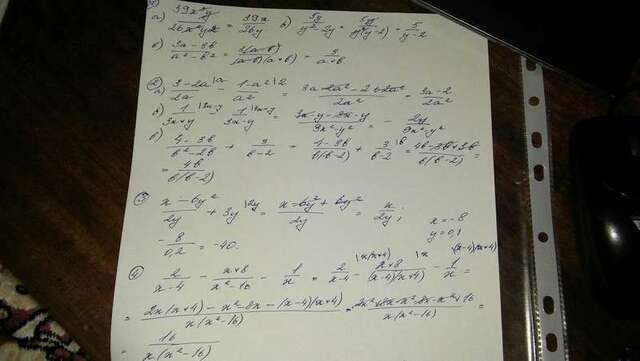 ①
а) 39x³y / 26x²y² = 39x / 26y б) 5y / y²-2y = 5y / y(y-2) = 5 / y-2
в) 3a-3b / a²-b² = 3(a-b) / (a-b)(a+b) = 3 / a+b
② а) 3-2a\a / 2a - 1-a²\2 / a² = 3a-2a²-2+2a² / 2a² = 3a-2 / 2a²
б) 1\3x-y / 3x+y - 1\3x+y / 3x-y = 3x-y-3x-y / 9x²-y² = - 2y / 9x²-y²
в) 4-3b / b²-2b + 3 / b-2 = 4-3b / b(b-2) + 3\b / b-2 = 4-3b+3b / b(b-2) =
= 4 / b(b-2)
③ x-6y² / 2y + 3y\2y = x-6y²+6y² / 2y = x / 2y; x=-8
y=0,1
- 8 / 0,2 = -40.
④ 2 / x-4 - x+8 / x²-16 - 1 / x = 2\x(x+4) / x-4 - x+8\x / (x-4)(x+4) - 1\(x-4)(x+4) / x =
= 2x(x+4)-x²-8x-(x-4)(x+4) / x(x²-16) = 2x²+8x-x²-8x-x²+16 / x(x²-16) =
= 16 / x(x²-16)